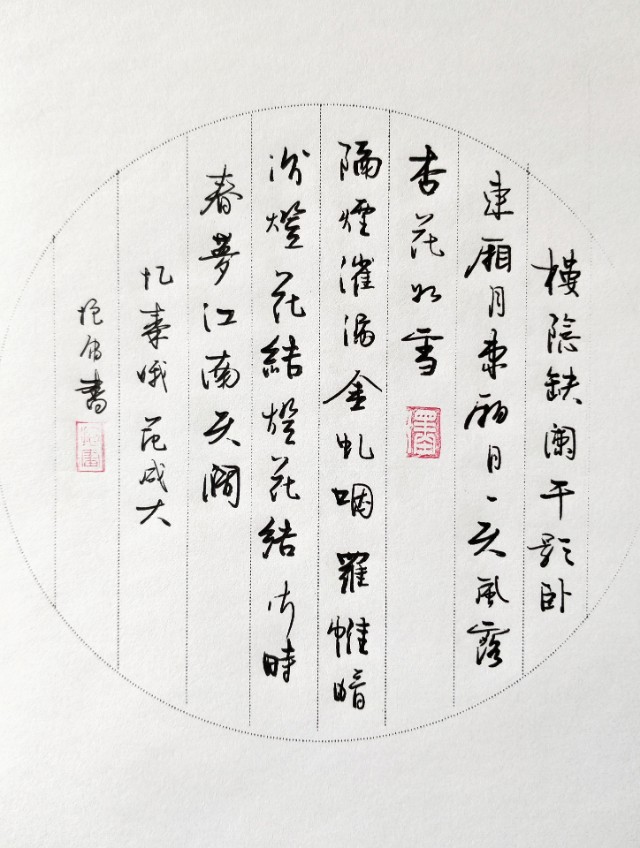 樓陰缺闌干影卧
東厢月東厢月一天風露
杏花如雪
隔煙催漏金虬咽羅帷暗
淡燈花結燈花結片時
春夢江南天闊
忆秦娥 范成大
書